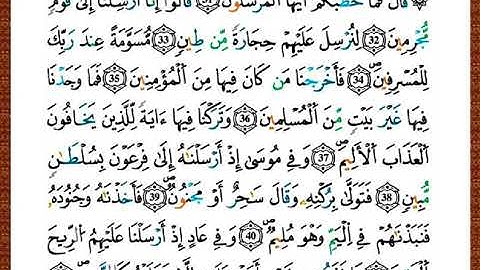 قَالَ فَمَا خَطْبُكُمْ أَيُّهَا الْمُرْسَلُونَ ﴿31﴾ قَالُوا إِنَّا أُرْسِلْنَا إِلَى قَوْمٍ
مُّجْرِمِينَ ﴿32﴾ لِنُرْسِلَ عَلَيْهِمْ حِجَارَةً مِّن طِينٍ ﴿33﴾ مُّسَوَّمَةً عِندَ رَبِّكَ
لِلْمُسْرِفِينَ ﴿34﴾ فَأَخْرَجْنَا مَن كَانَ فِيهَا مِنَ الْمُؤْمِنِينَ ﴿35﴾ فَمَا وَجَدْنَا
فِيهَا غَيْرَ بَيْتٍ مِّنَ الْمُسْلِمِينَ ﴿36﴾ وَتَرَكْنَا فِيهَا ءَايَةً لِّلَّذِينَ يَخَافُونَ
الْعَذَابَ الْأَلِيمَ ﴿37﴾ وَفِي مُوسَى إِذْ أَرْسَلْنَٰهُ إِلَى فِرْعَوْنَ بِسُلْطَٰنٍ
مُّبِينٍ ﴿38﴾ فَتَوَلَّى بِرُكْنِهِ وَقَالَ سَٰحِرٌ أَوْ مَجْنُونٌ ﴿39﴾ فَأَخَذْنَٰهُ وَجُنُودَهُ
فَنَبَذْنَٰهُمْ فِي الْيَمِّ وَهُوَ مُلِيمٌ ﴿40﴾ وَفِي عَادٍ إِذْ أَرْسَلْنَا عَلَيْهِمُ الرِّيحَ